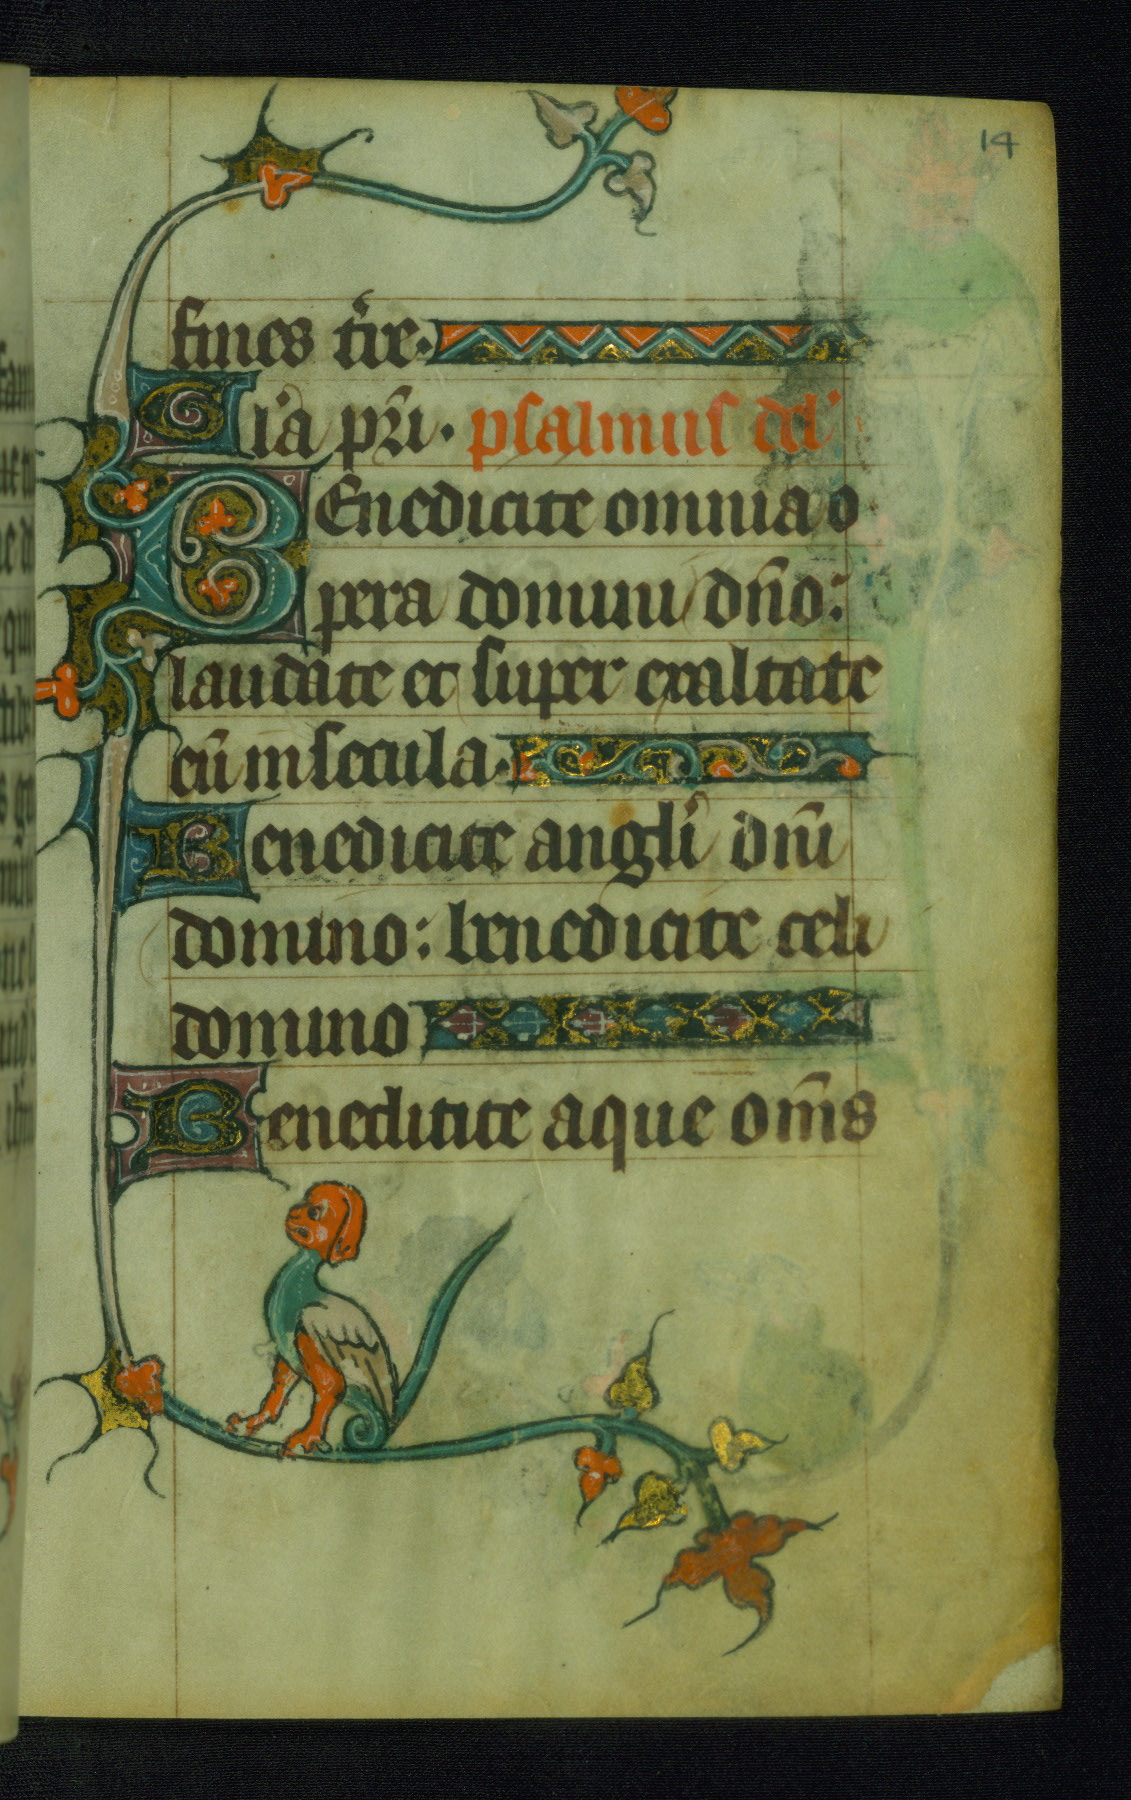 14
fines tr̄e.
Gl'a pr̄i. psalmus dd'
BEnedicite omnia o
pera domini dn̄o:
laudate et super exaltate
eū in secula.
Benedicite angl'i dn̄i
domino: benedicite celi
domino
Benedicite aque om̄s